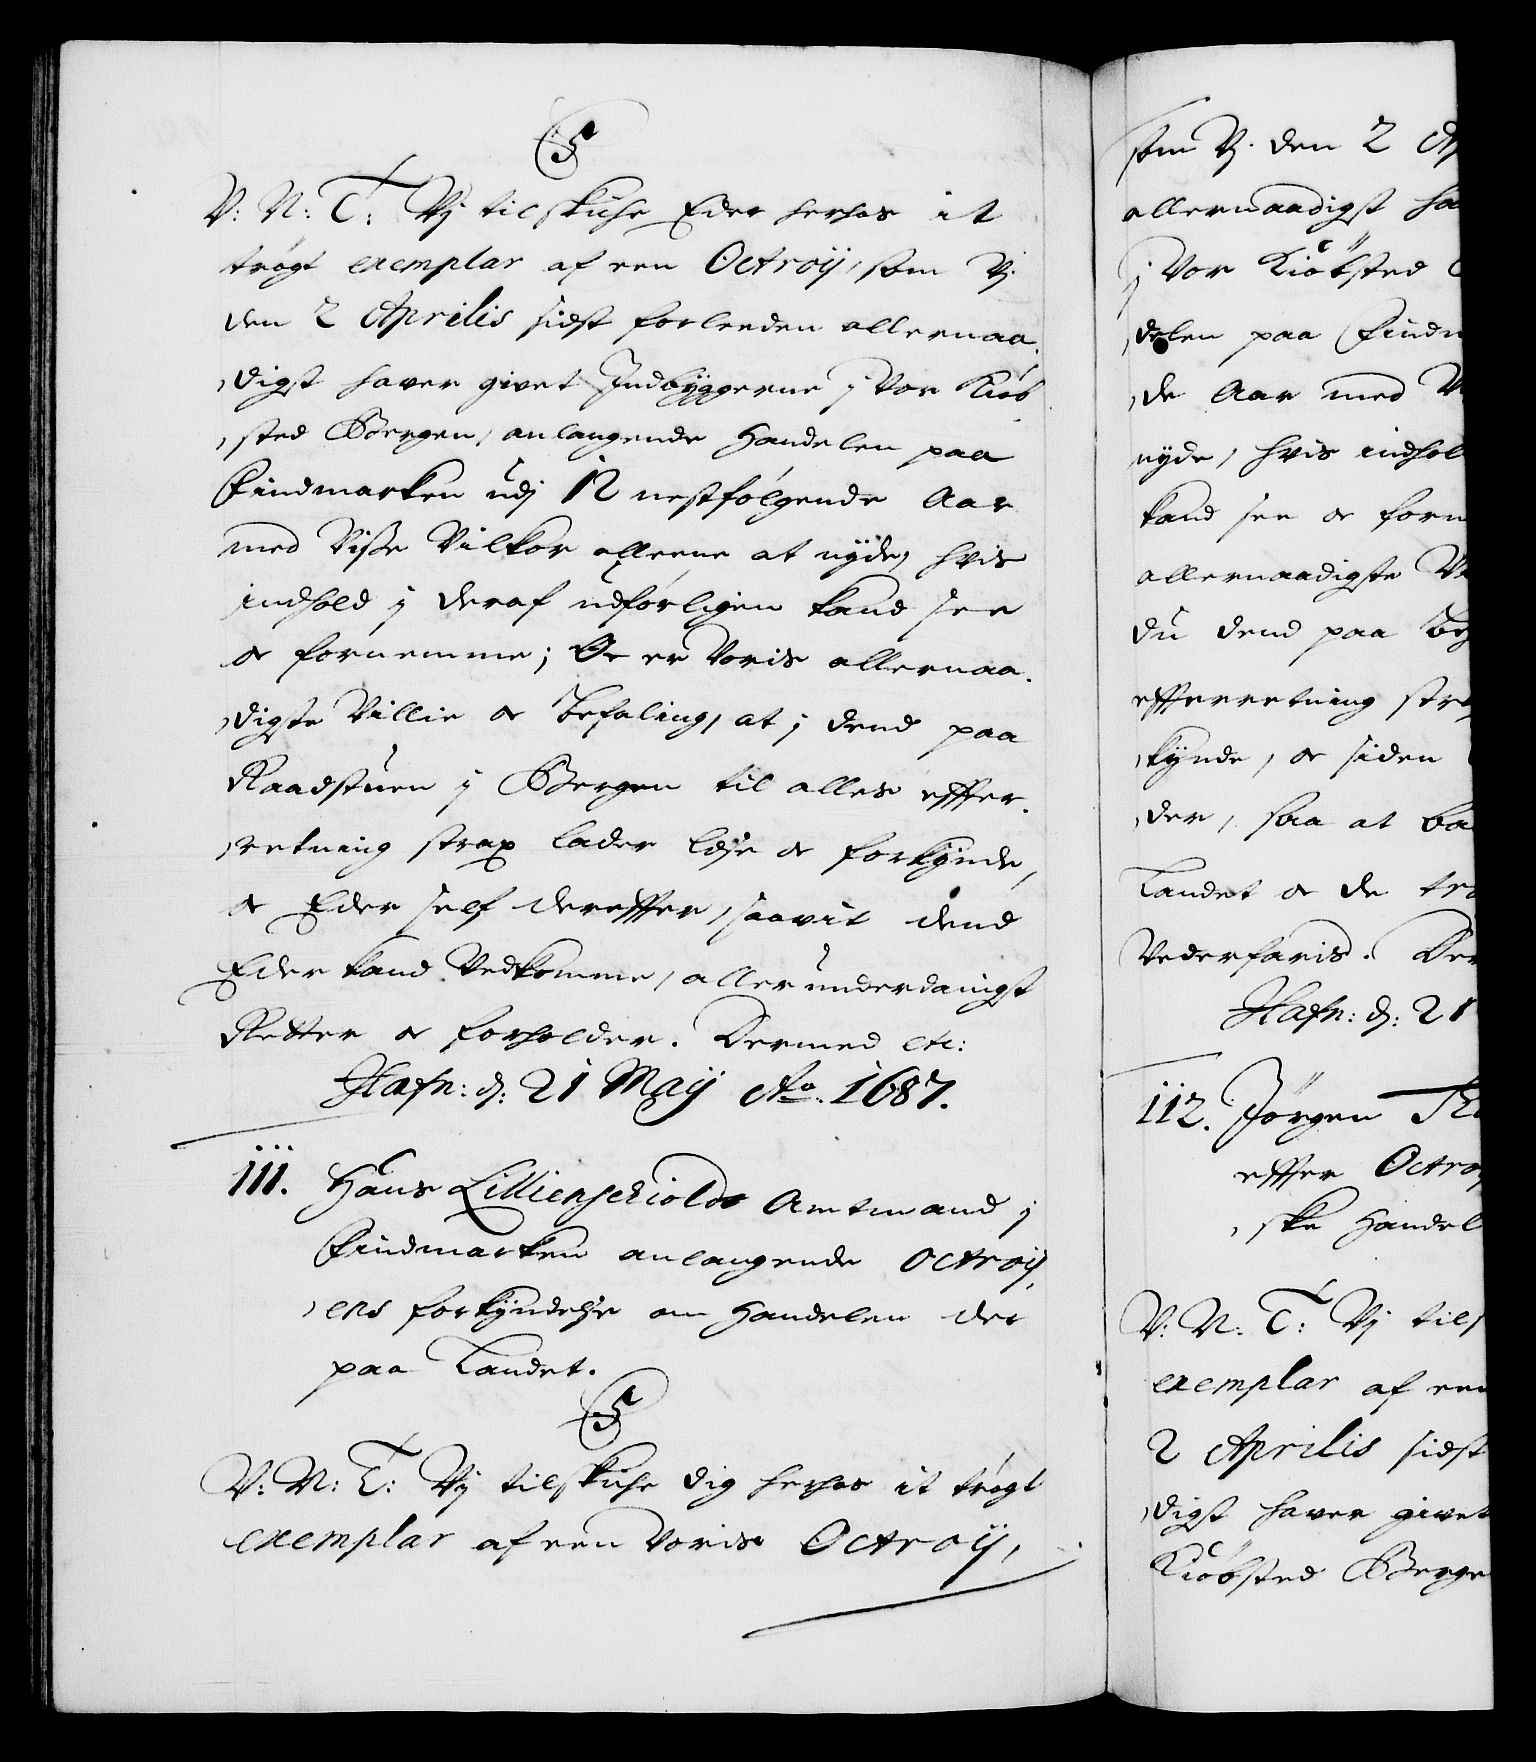 V: N: T: Vj tilskiche Eder herhos it
trøgt exemplar af een Octroÿ, som Vj
den 2 Aprilis sidst forleeden allernaa-
digst haver givet Indbÿggerne j Vor Kiøb
sted Bergen, anlangende Handelen paa
Findmarken udj 12 nestfølgende Aar
med Visse Vilkor alleene at nÿde, hvis
indhold j deraf udførligen kand see
oc fornemme; Oc er Voris allernaa-
digste Villie oc Befaling, at j dend paa
Raadstuen j Bergen til alles effter-
retning strax lader læse oc forkÿnde,
oc Eder self dereffter, saavit dend
Eder kand Vedkomme, allerunderdanigst
Retter oc forholder. Dermed etc:
Hafn: d: 21 Maÿ Ao. 1687.
111. Hans Lillienschiold Amtmand j
Findmarken anlangende Octroÿ-
ens forkÿndelse om Handelen der
paa Landet.
V: N: T: Vj tilskiche dig herhos it trøgt
exemplar af een Voris Octroÿ,
som Vj. den 2
allernaadigst
j Vor Kiøbsted
delen paa
de Aar med
nÿde, hvis
kand see oc
allernaadigste
du dend paa
effterretning
kÿnde, oc siden
der, saa at
Landet oc de
Vederfaris.
Hafn: d: 21
112. Jørgen
effter
ske
V: N: T: Vj
exemplar af een
2 Aprilis sidst
digst haver givet
Kiøbsted